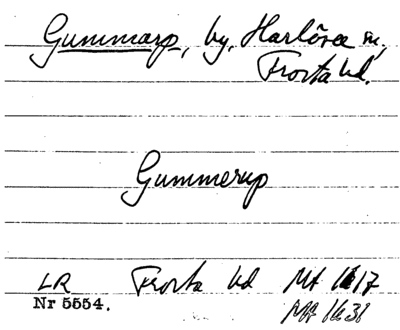 Gummarp, by, Harlösa sn,
Frosta hd.
Gummerup
LR Frosta hd Mt 1617
Nr 5554. Mt 1631